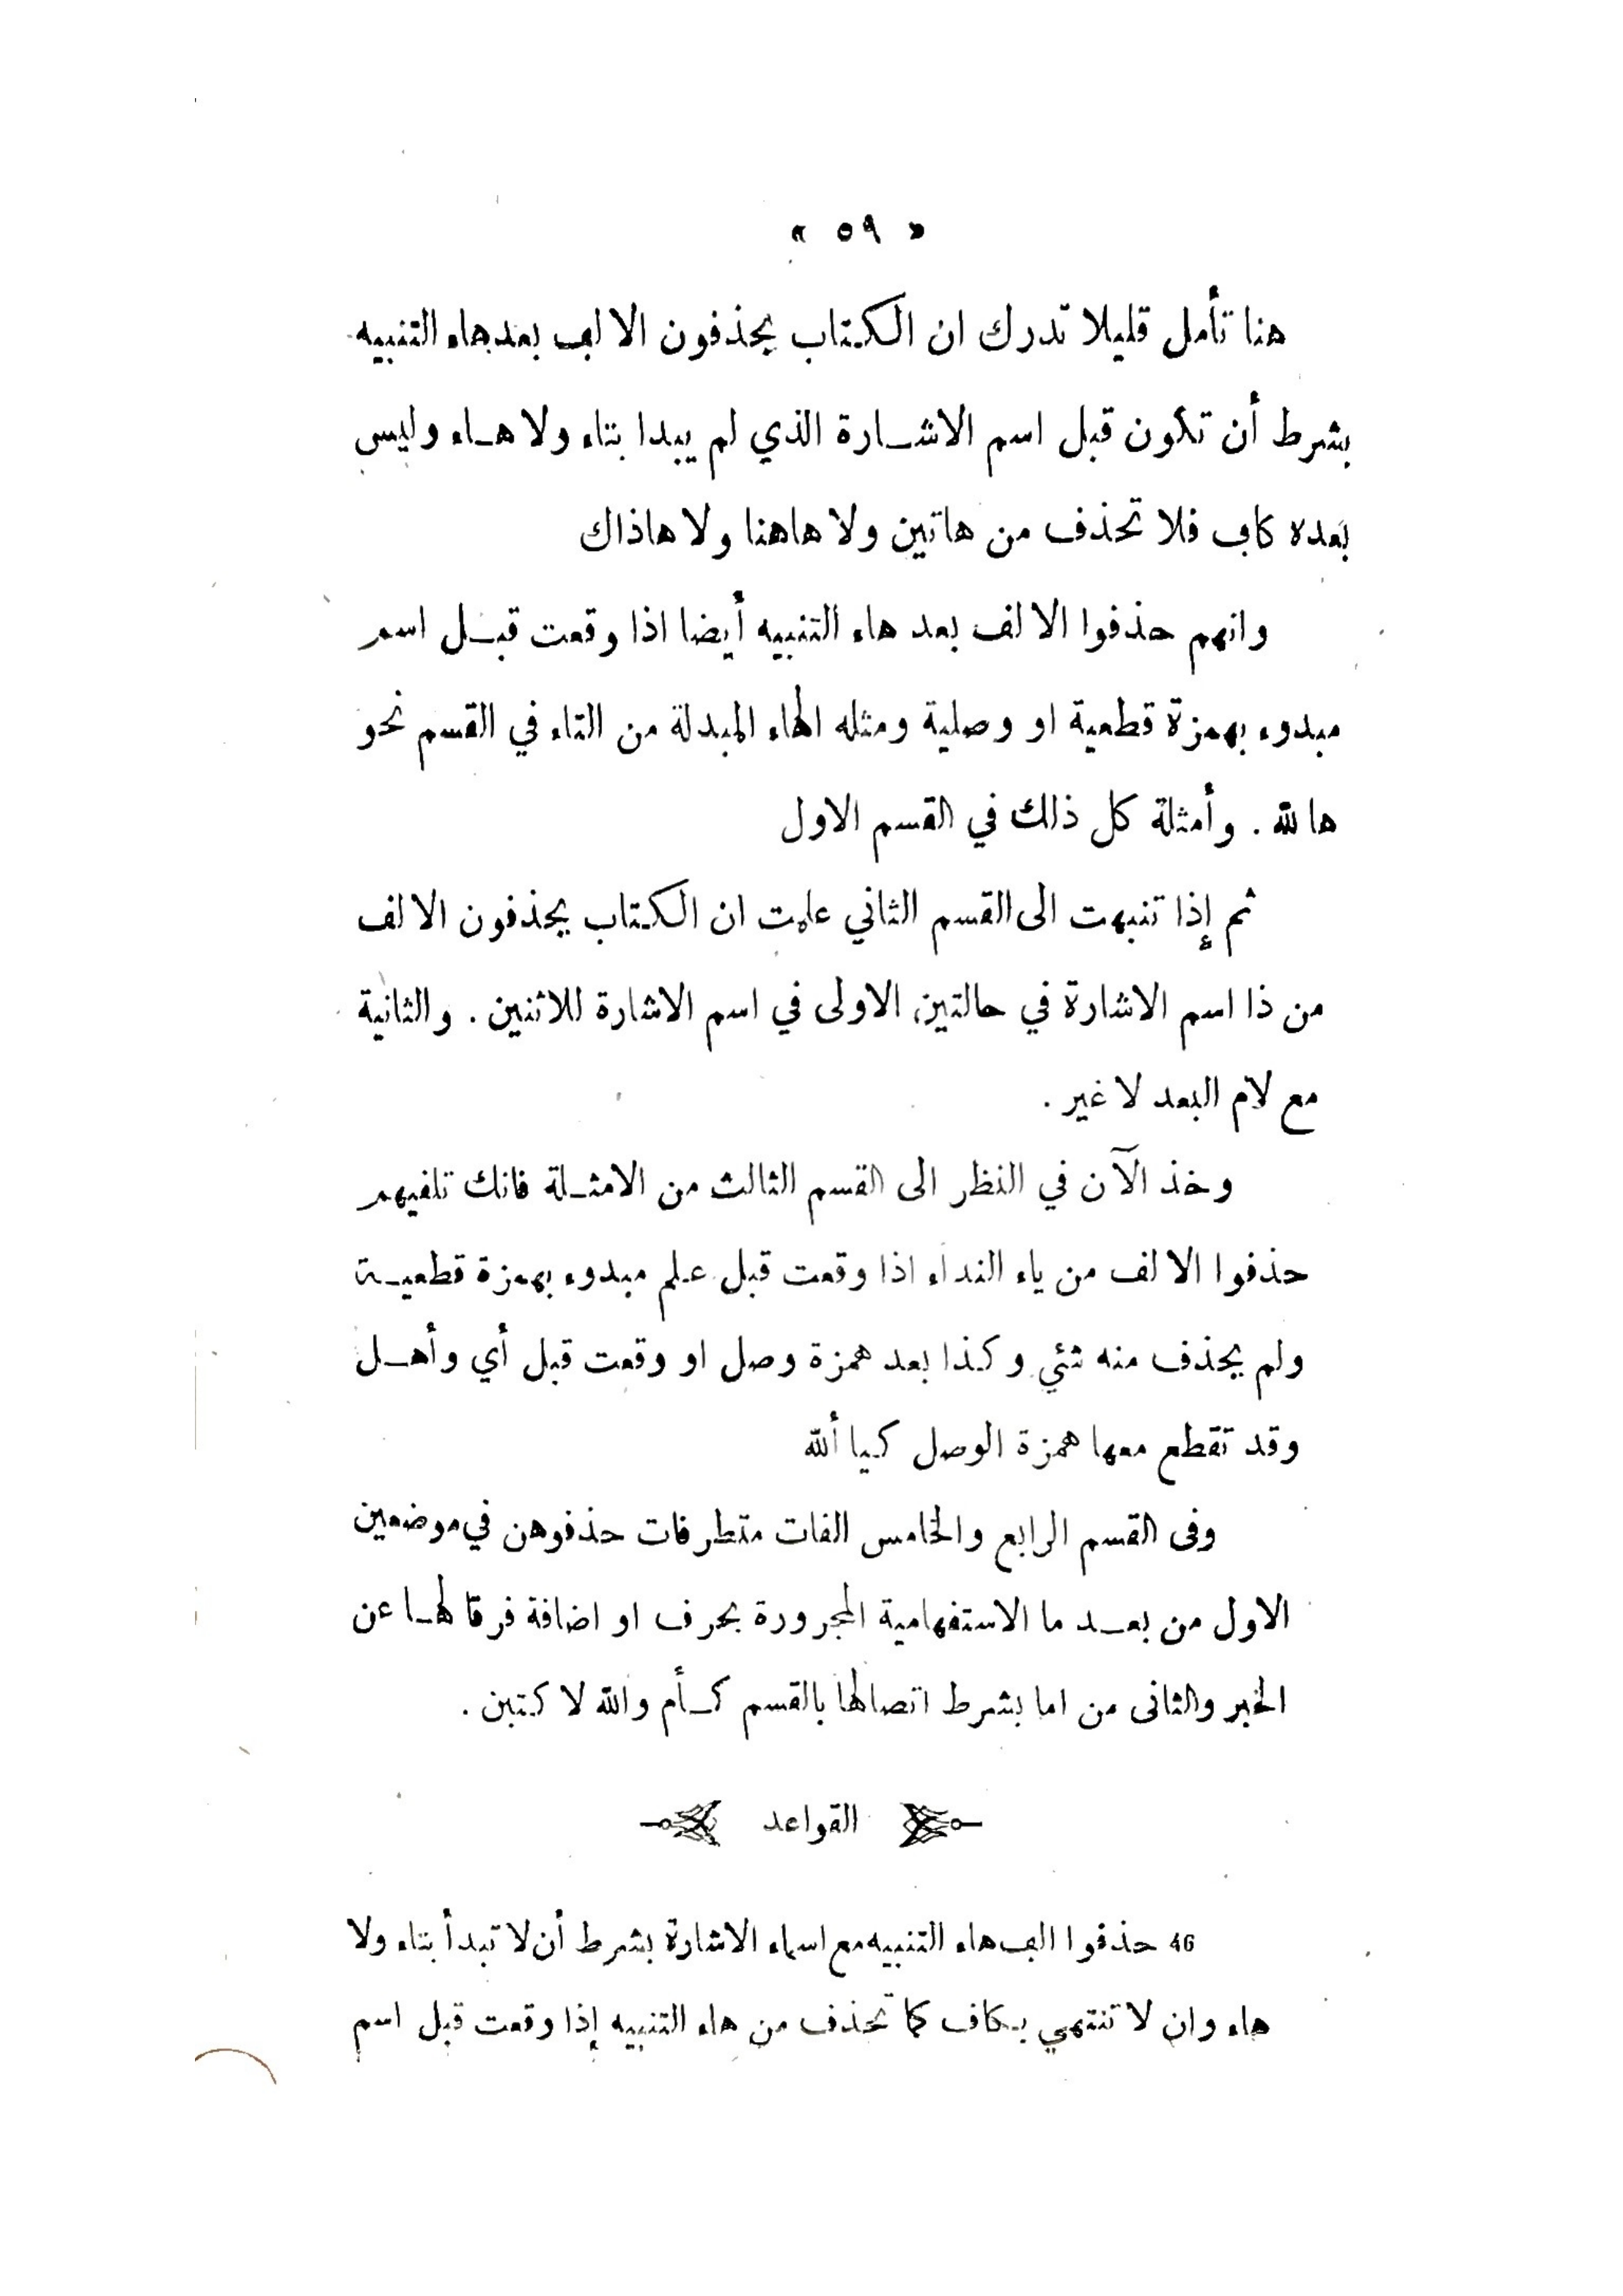 « ٥٩ »
هنا تأمل قليلا تدرك ان الكتاب يحذفون الالف بعد هاء التنبيه
بشرط أن تكون قبل اسم الاشارة الذي لم يبدا بتاء ولا هاء وليس
بعده كاف فلا تحذف من هاتين ولا هاهنا ولا هاذاك
وانهم حذفوا الالف بعد هاء التنبيه أيضا اذا وقعت قبل اسم
مبدوء بهمزة قطعية او وصلية ومثله الهاء المبدلة من التاء في القسم نحو
ها لله . وأمثلة كل ذلك في القسم الاول
ثم إذا تنبهت الى القسم الثاني علمت ان الكتاب يحذفون الالف
من ذا اسم الاشارة في حالتين، الاولى في اسم الاشارة للاثنين . والثانية
مع لام البعد لا غير .
وخذ الآن في النظر الى القسم الثالث من الامثلة فانك تلفيهم
حذفوا الالف من ياء النداء اذا وقعت قبل علم مبدوء بهمزة قطعية
ولم يحذف منه شئي وكذا بعد همزة وصل او وقعت قبل أي وأهل
وقد تقطع معها همزة الوصل كيا ألله
وفى القسم الرابع والخامس الفات متطرفات حذفوهن في موضعين
الاول من بعد ما الاستفهامية المجرورة بحرف او اضافة فرقا لها عن
الخبر والثانى من اما بشرط اتصالها بالقسم كأم والله لا كتبن .
القواعد
46 حذفوا الف هاء التنبيه مع اسماء الاشارة بشرط أن لا تبدأ بتاء ولا
هاء وان لا تنتهي بكاف كما تحذف من هاء التنبيه إذا وقعت قبل اسم